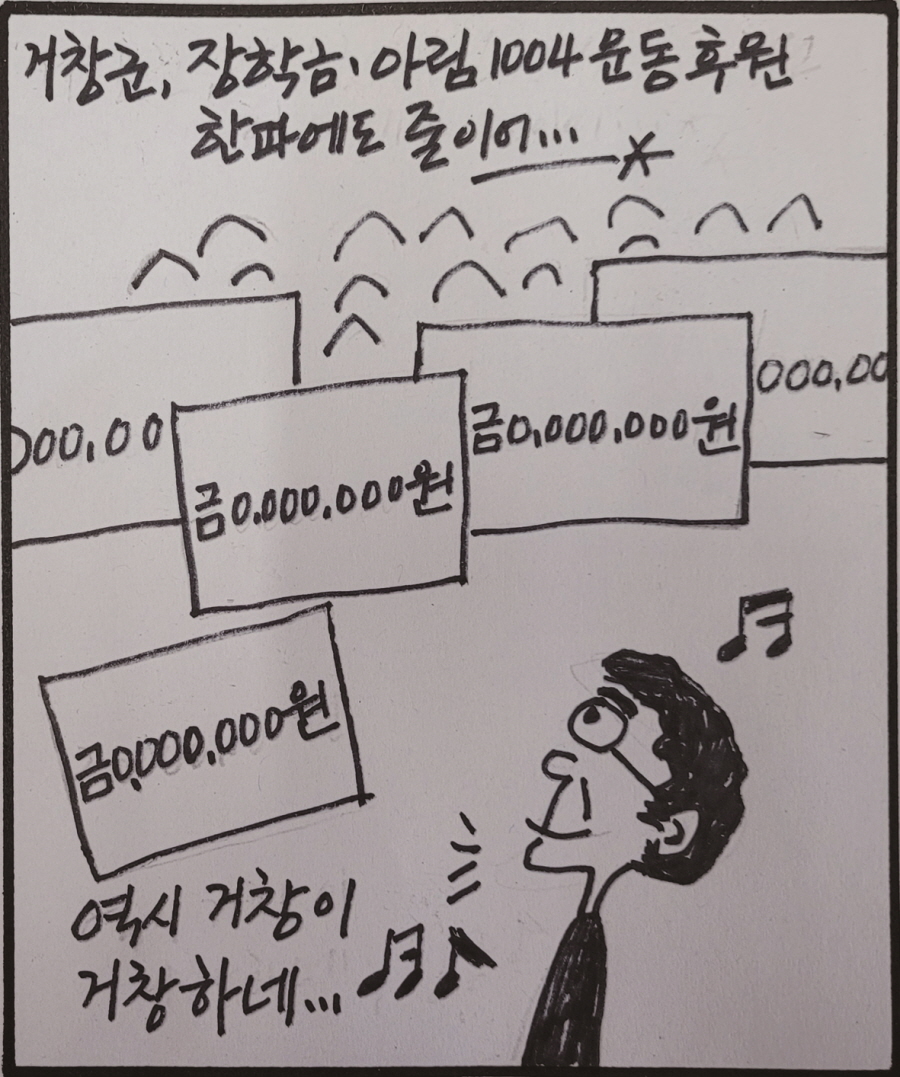 거창군, 장학금·아림1004운동후원
한파에도 줄이어...
000,00
금0,000,000원
금0,000,000원
000,00
금0,000,000원
역시 거창이
거창하네...